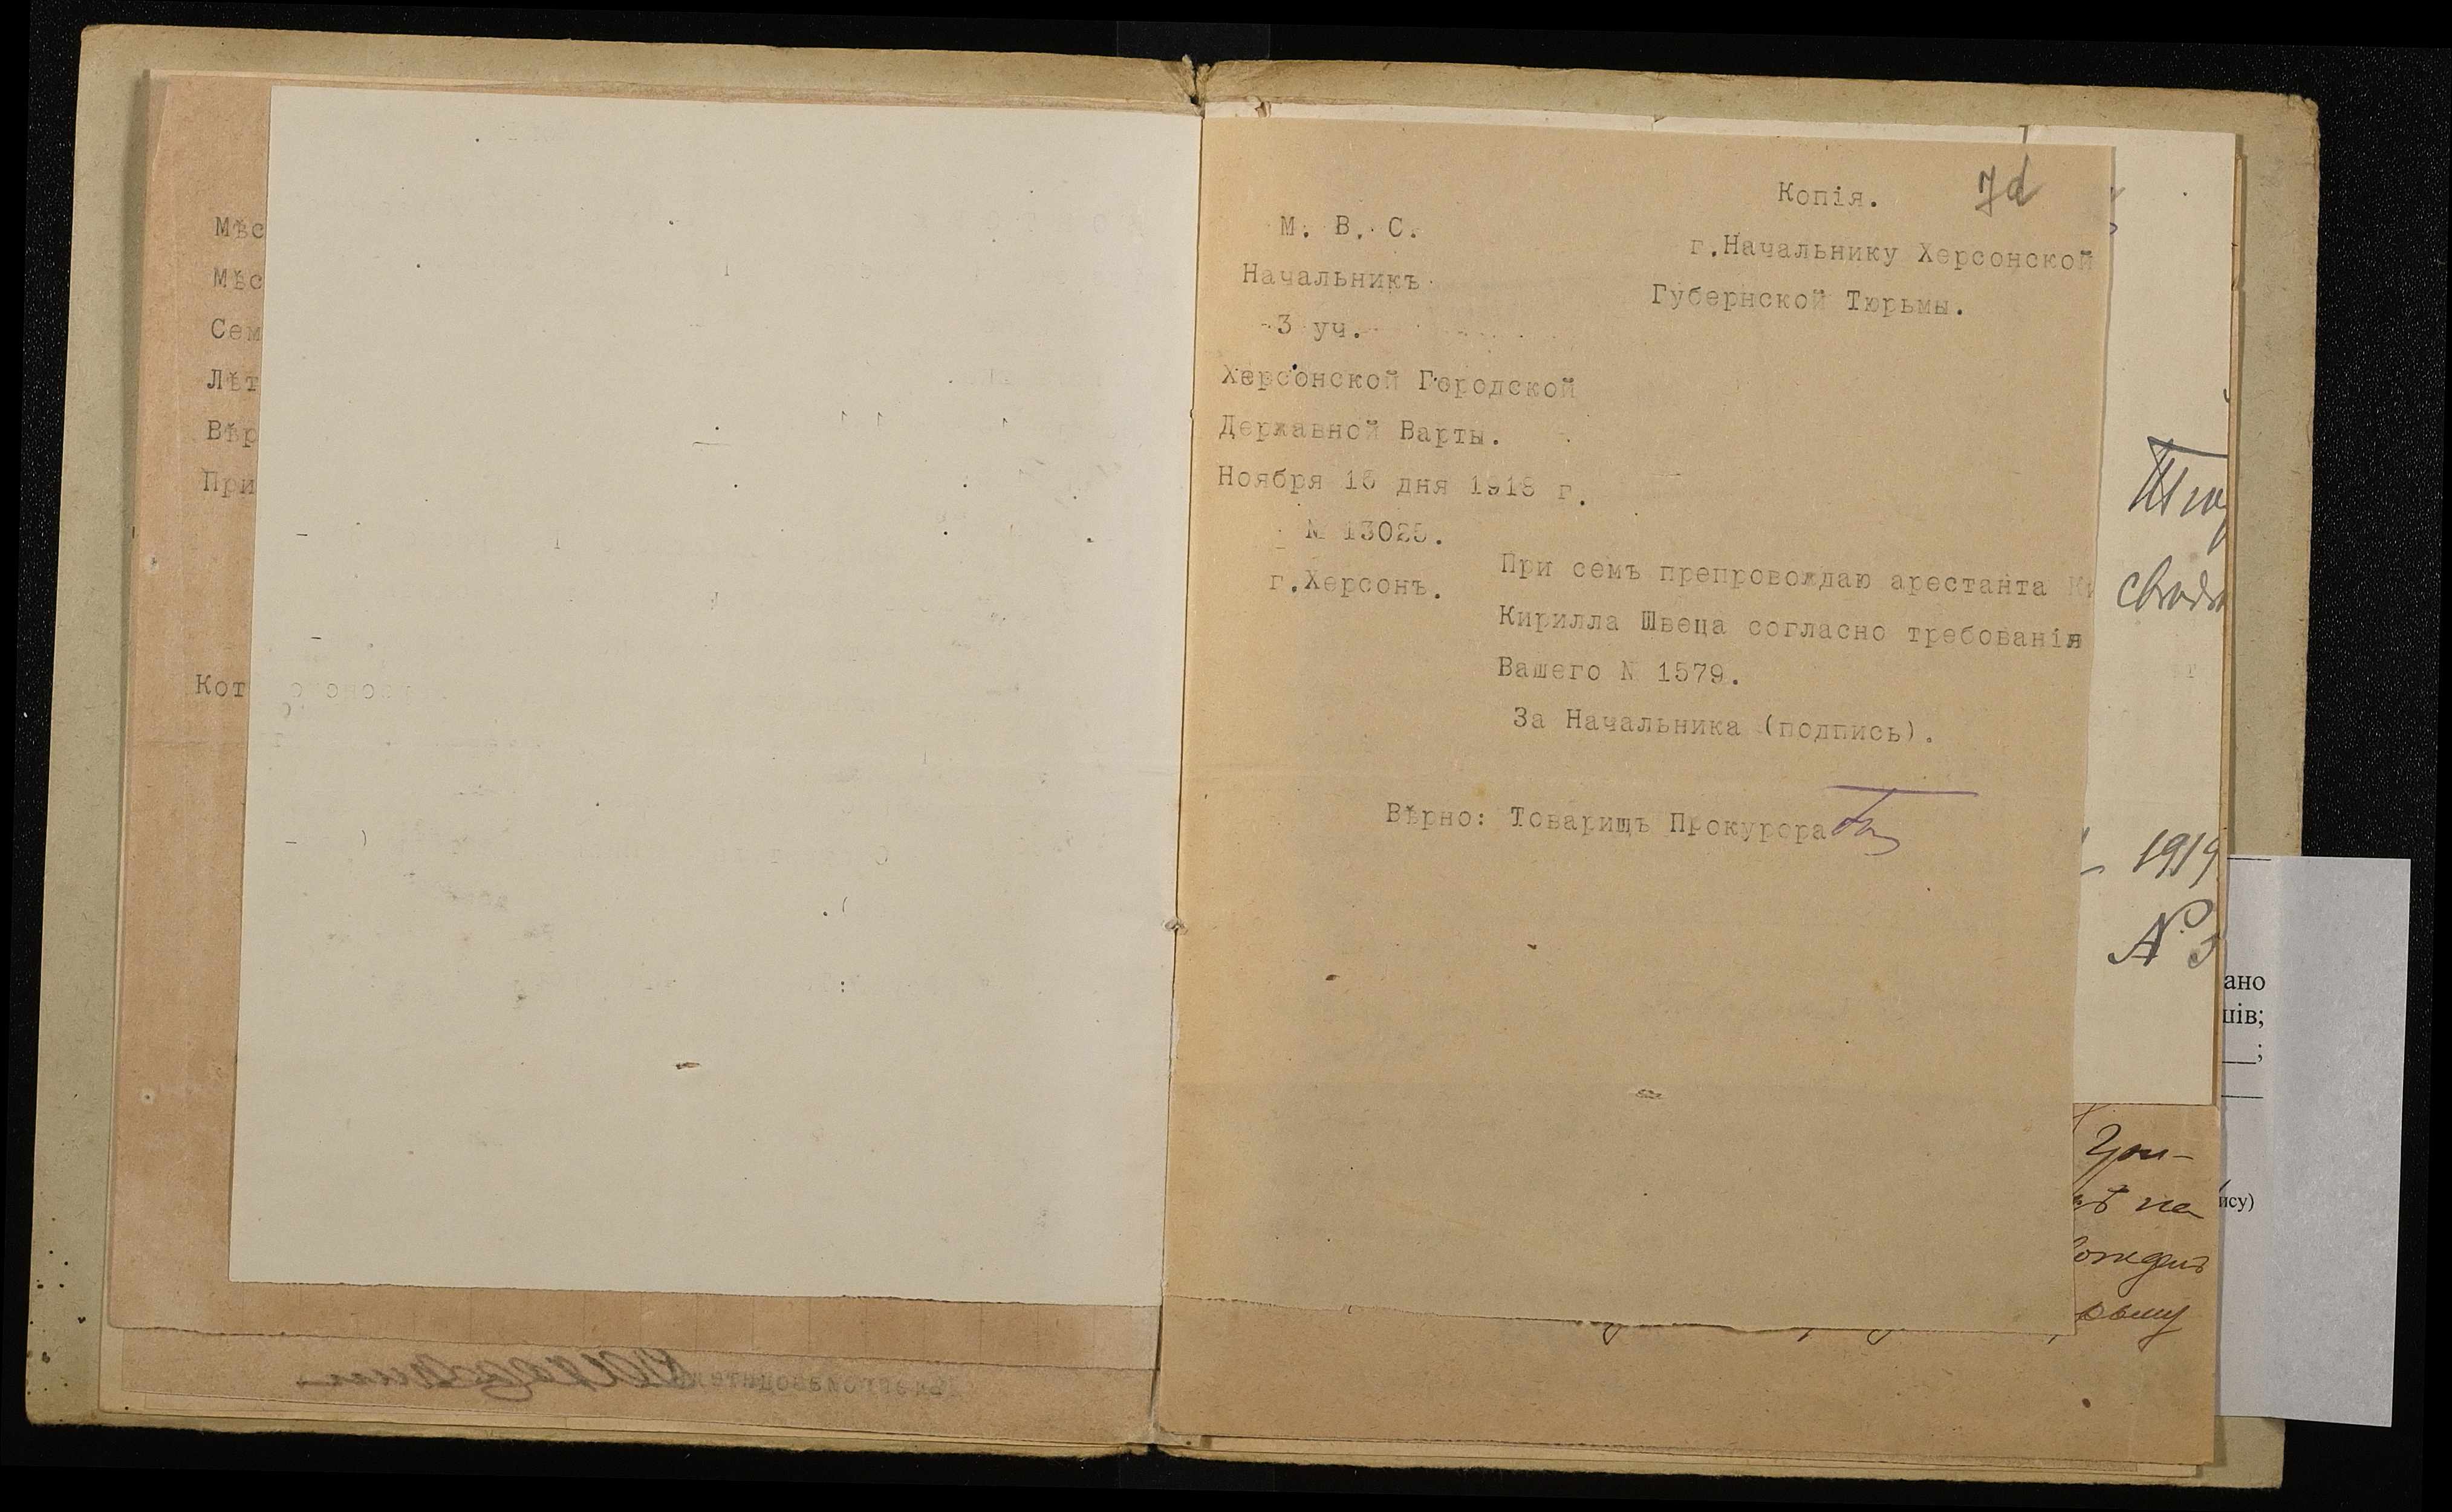 Мѣс
Мѣс
Сем
Лѣт
Вѣр
При
Кот
Копія.
М. В. С.
г.Начальнику Херсонской
Начальникъ
Губернской Тюрьмы.
3 уч.
Херсонской Городской
Державной Варты.
Ноября 15 дня 1918 г.
№ 13025.
г.Херсонъ.
При семъ препровождаю арестанта Ки
Кирилла Швеца согласно требованія
Вашего № 1579.
За Начальника (подпись).
Вѣрно: Товарищъ Прокурора
1919
№
ано
ів;
ису)